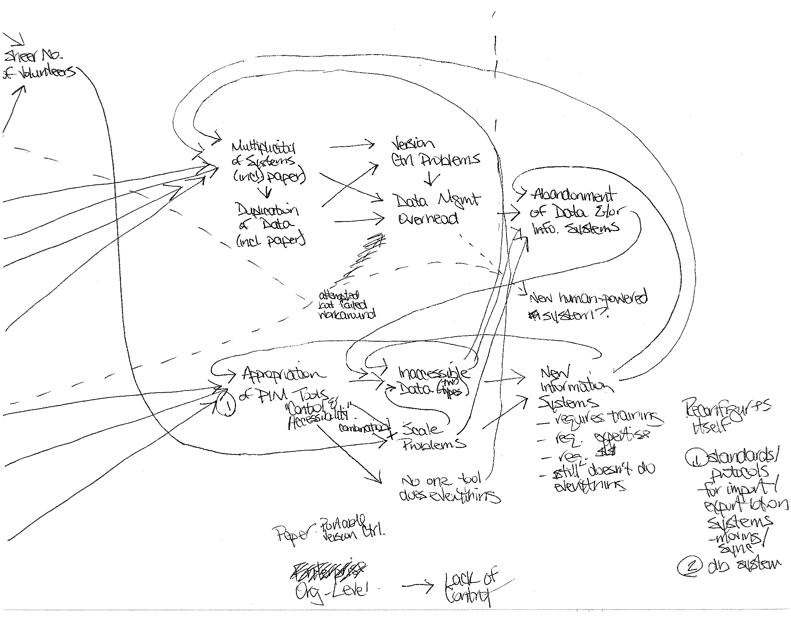 Sheer No.
of Volunteers
Multiplicity
of Systems
(incl paper)
Duplication
of Data
(incl paper)
Version
Ctrl Problems
Data Mgmt
Overhead
Abandonment
of Data &/or
Info. Systems
New human-powered
system?
attempted
but failed
workaround
Appropriation
of PIM Tools
1
"Control &
Accessibility"
combination
Inaccessible
Data (two
types)
Scale
Problems
No one tool
does everything
New
Information
Systems
- requires training
- req. expertise
- req.
- still doesn't do
everything
Reconfigures
itself
1 standards/
protocols
for import/
export btwn
systems
-moving/
sync
2 db system
Paper: portable
version ctrl.
Org-Level
Lack of
Control